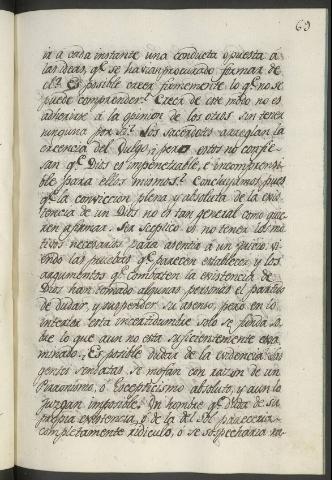 69
ir a cada instante una conducta opuesta á
las ideas, q.e se havian procurado formar de
el? Es posible creer firmemente lo q.e no se
puede comprender? Creer de este modo no es
adherirse á la opinion de los otros sin tener
ninguna por si? Los sacerdotes arreglan la
creencia del Vulgo; pero estos no confie-
san q.e Dios es impenetrable, é incomprensi-
ble para ellos mismos? Concluyamos, pues
q.e la conviccion plena y absoluta de la exis-
tencia de un Dios no es tan general como quie-
ren afirmar. Ser sceptico es no tener los mo-
tivos necesarios para asentir á un juicio. Vi-
endo las pruebas q.e parecen establecer, y los
argumentos q.e combaten la existencia de
Dios han tomado algunas personas el partido
de dudar, y suspender su asenso, pero en lo
interior esta incertidumbre solo se funda so-
bre lo que aun no esta suficientemente exa-
minado. ¿Es posible dudar de la evidencia? Las
gentes sensatas se mofan con razon de un
Pirronismo, ó Scepticismo absoluto, y aun lo
juzgan imposible. Un hombre q.e duda de su
propia existencia, ó de la del Sol pareceria
completamente ridiculo, ó se sospecharia ra-